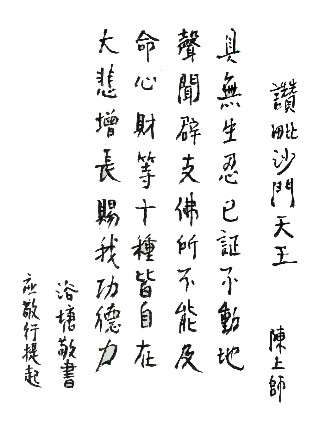 讚毗沙門天王
陳上師
具無生忍已証不動地
聲聞辟支佛所不能及
命心財等十種皆自在
大悲增長賜我功德力
浴塘敬書
应敬行提起